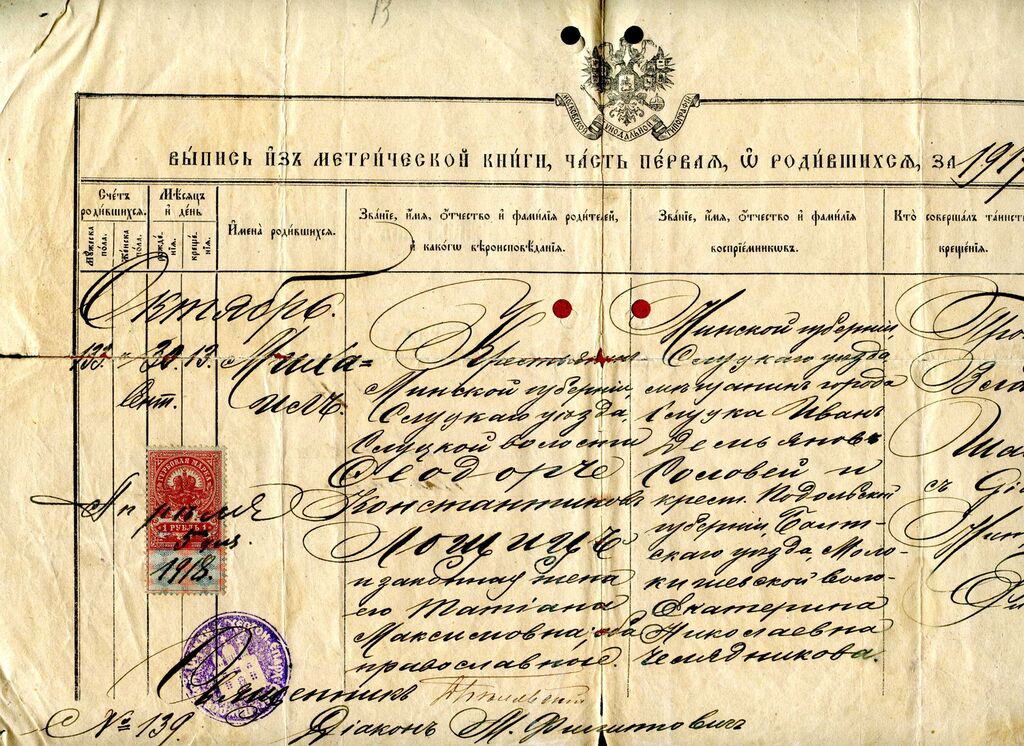 13
МОСКОВСКОЙ СѴНОДАЛЬНОЙ ТИПОГРАФІИ
ВЫ́ПИСЬ И҆ЗЪ МЕТРИ́ЧЕСКОЙ КНИ́ГИ, ЧА́СТЬ ПЕ́РВАЯ, Ѽ РОДИ́ВШИХСЯ, ЗА 1917
Сче́тъ роди́вшихся.
Мѣ́сяцъ и҆ де́нь
И҆мена̀ роди́вшихся.
Зва́нїе, и҆́мя, ѻ҆́тчество и҆ фами́лїя роди́телей, и҆ како́гѡ вѣроисповѣ́данїя.
Зва́нїе, и҆́мя, ѻ҆́тчество и҆ фами́лїя воспрїе́мникѡвъ.
Кто̀ соверша́лъ таинст
креще́нїя.
Му́жеска по́ла.
Же́нска по́ла.
рожде́нїя.
креще́нїя.
Октябрь.
133. " 30. 13.
Сент.
Миха=
илъ.
Крестьянинъ
Минской губерніи,
Слуцкаго уезда,
Слуцкой волости
Ѳеодоръ
Константиновъ
Лощицъ
и законная жена
его Татіана
Максимовна; оба
православные.
Минской губерніи,
Слуцкаго уезда
мещанинъ города
Слуцка Иванъ
Демьяновъ
Соловей и
крест. Подольской
губерніи, Балт-
скаго уезда, Моло-
кишевской воло-
Екатерина
Николаевна
Челядникова.
Про
с Ді
ГЕРБОВАЯ МАРКА
1 РУБЛЬ 1
Апреля
5 дня
1918.
Священникъ
№ 139.
Діаконъ М. Филиповичъ